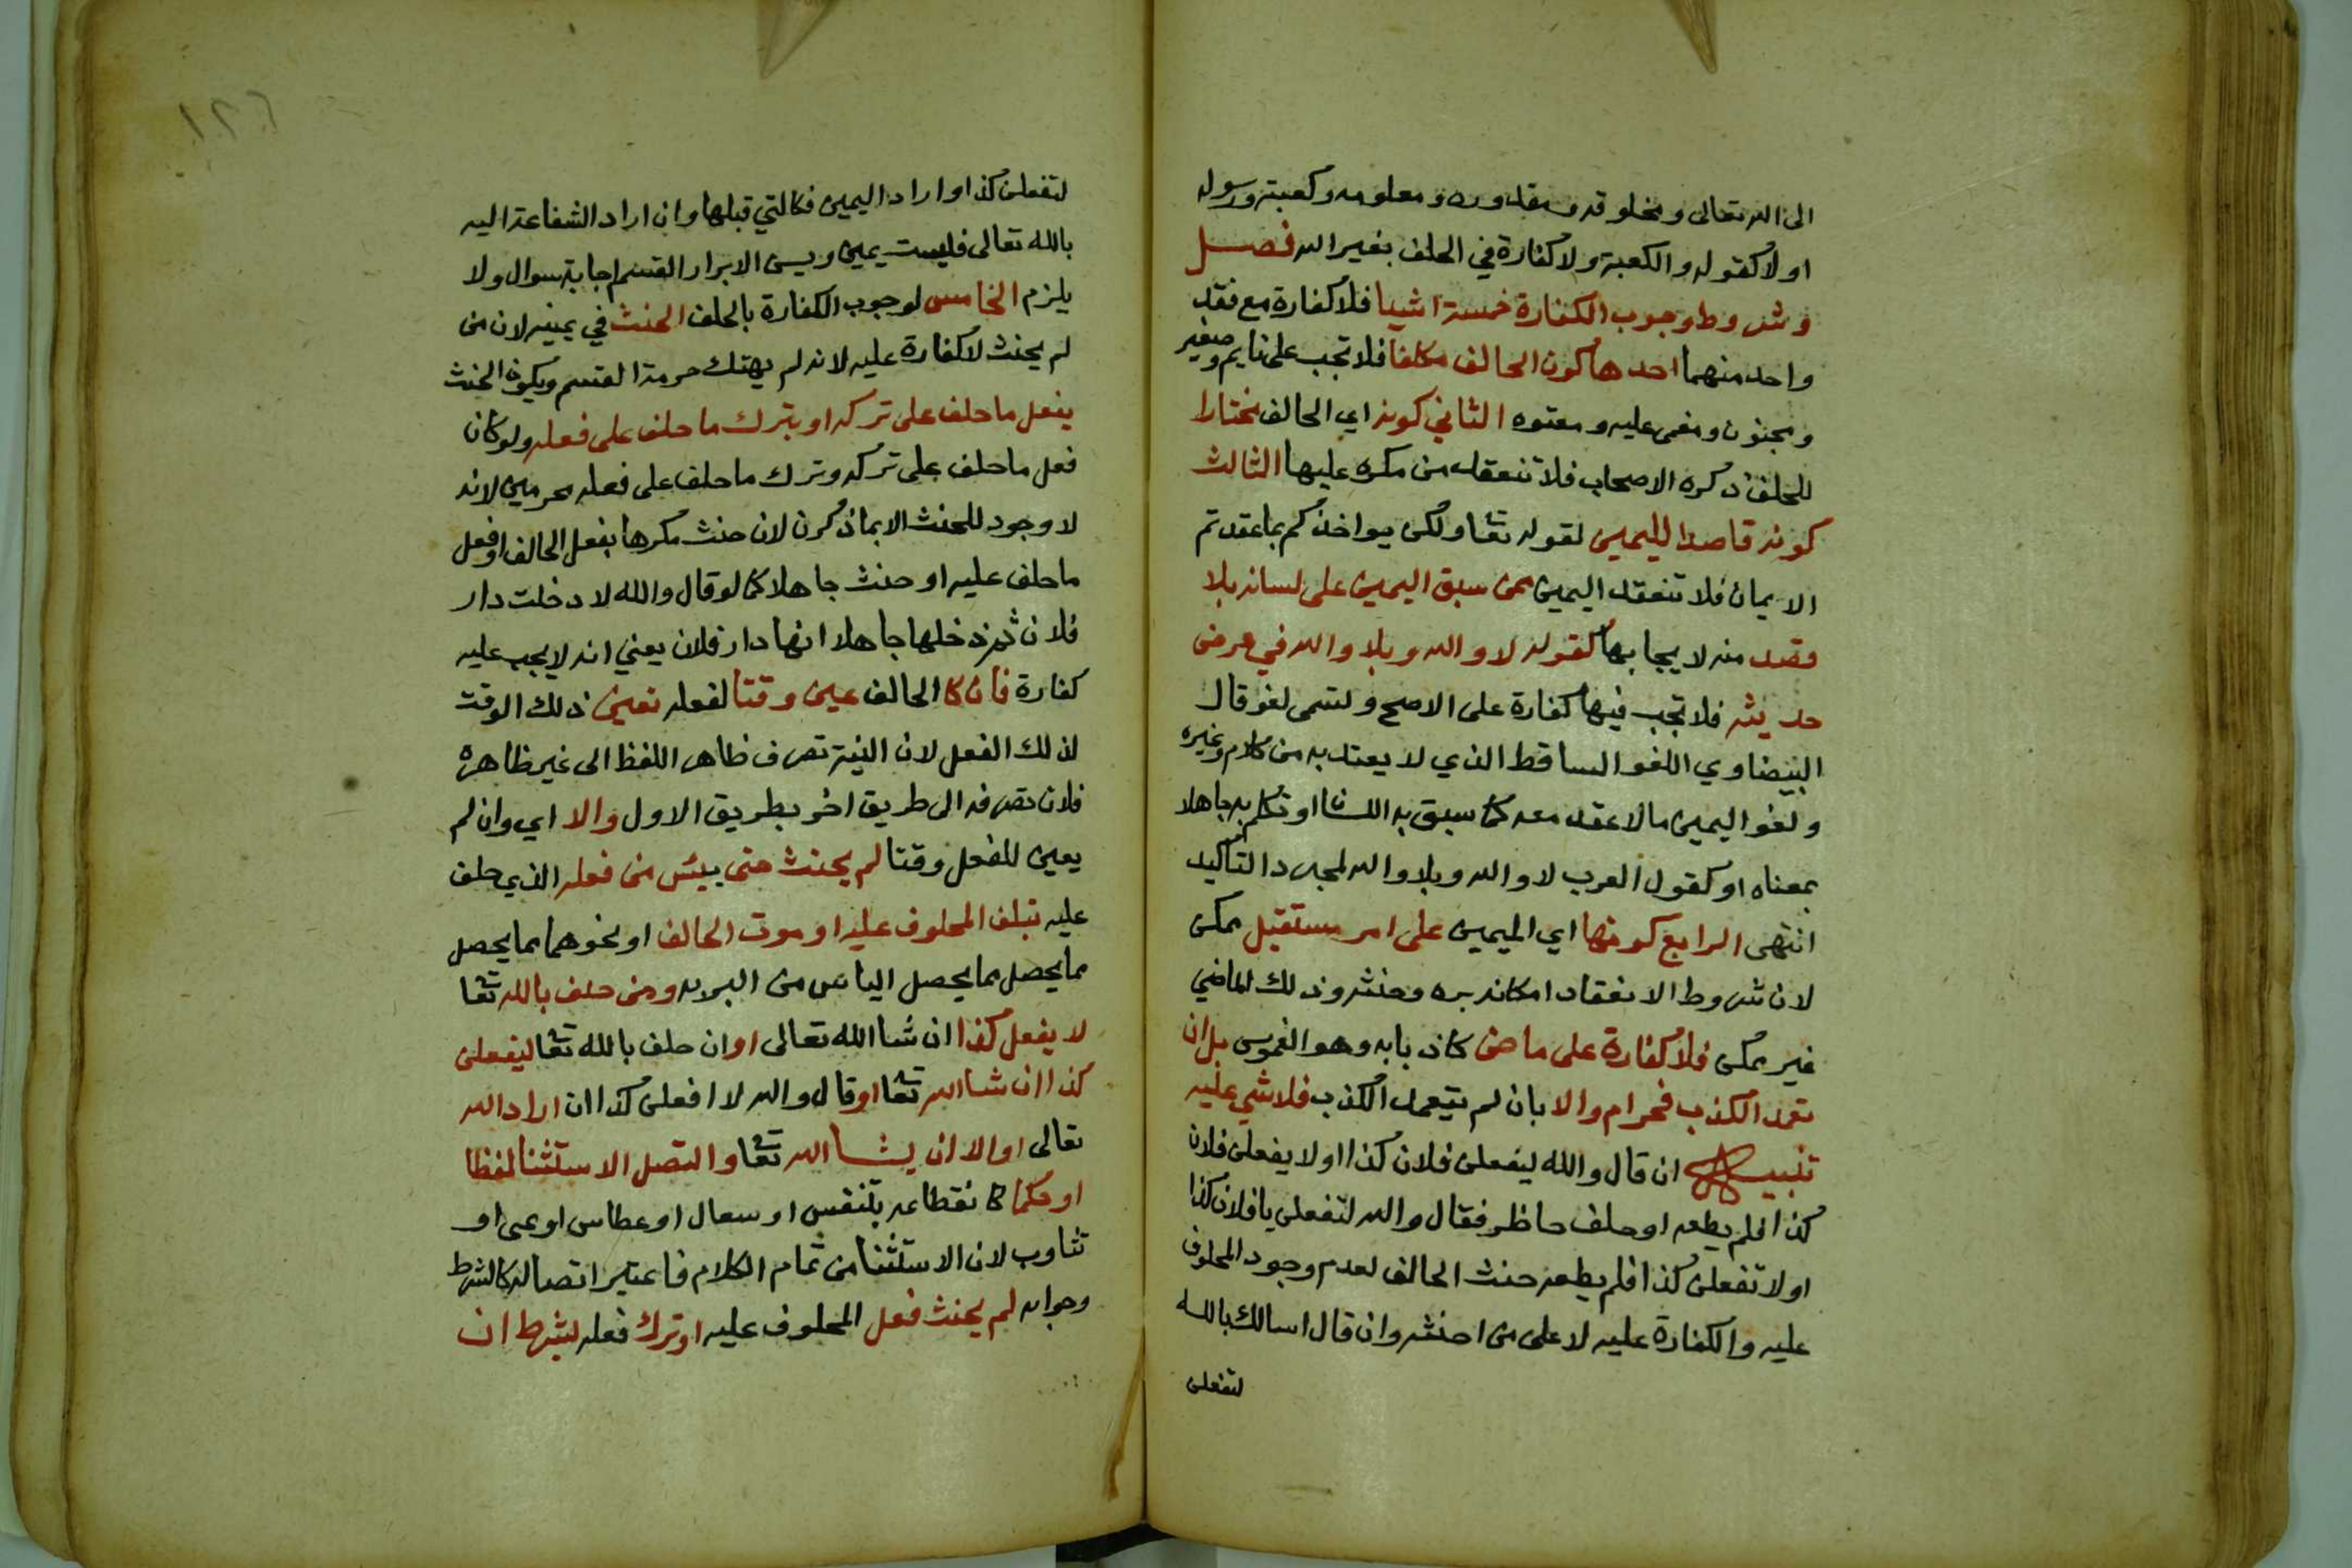 الى الله تعالى ومخلوقه ومقدوره ومعلومه وكعبته ورسوله
اولا كقوله والكعبة ولا كفارة في الحلف بغير الله فصل
وشروط وجوب الكفارة خمسة اشيا فلا كفارة مع فقد
واحد منهما احدها كون الحالف مكلفا فلا تجب على نايم وصغير
ومجنون ومغمى عليه ومعتوه الثاني كونه اي الحالف مختارا
للحلف ذكره الاصحاب فلا تنعقد من مكره عليها الثالث
كونه قاصدا لليمين لقوله تعا ولكن يواخذكم بما عقدتم
الايمان فلا تنعقد اليمين ممن سبق اليمين على لسانه بلا
قصد منه لا يجابها كقوله لا والله وبلا والله في عرض
حديثه فلا تجب فيها كفارة على الاصح ولتسمى لغو قال
البيضاوي اللغو الساقط الذي لا يعتد به من كلام وغيره
ولغو اليمين مالا عقد معه كما سبق به اللسان او تكلم به جاهلا
بمعناه او كقول العرب لا والله وبلا والله لمجرد التاكيد
انتهى الرابع كونها اي اليمين على امر مستقبل ممكن
لان شروط الانعقاد امكانه بره وحنثه وذلك لماضي
غير ممكن فلا كفارة على ماضي كاذبا به وهو الغموس بل ان
تعمد الكذب فحرام والا بان لم يتعمد الكذب فلا شي عليه
تنبيه ان قال والله ليفعلن فلان كذا اولا يفعلن فلان
كذا فلم يطعه او حلف حاظر فقال والله لتفعلن يا فلان كذا
اولا تفعلن كذا فلم يطعه حنث الحالف لعدم وجود المحلوف
عليه والكفارة عليه لا على من احنثه وان قال اسالك بالله
لتفعلن
١٢٦
لتفعلن كذا او اراد اليمين فكالتي قبلها وان اراد الشفاعة اليه
بالله تعالى فليست يمين ويسن الابرار القسم اجابة سوال ولا
يلزم الخامس لوجوب الكفارة بالحلف الحنث في يمينه لان من
لم يحنث لا كفارة عليه لانه لم يهتك حرمة القسم ويكون الحنث
بفعل ما حلف على تركه او بترك ما حلف على فعله ولو كان
فعل ما حلف على تركه وترك ما حلف على فعله محرمين لانه
لا وجود للحنث الا بما ذكر لان حنث مكرها بفعل الحالف او فعل
ما حلف عليه او حنث جاهلا كما لو قال والله لا دخلت دار
فلان ثم دخلها جاهلا انها دار فلان يعني انه لا يجب عليه
كفارة فان كا الحالف عين وقتا لفعله تعين ذلك الوقت
لذلك الفعل لان النية تصرف ظاهر اللفظ الى غير ظاهره
فلان تصرفه الى طريق اخر بطريق الاول والا اي وان لم
يعين للفعل وقتا لم يحنث حتى ييئس من فعله الذي حلف
عليه تبلف المحلوف عليه او موت الحالف او نحوهما مما يحصل
مما يحصل مما يحصل الياس من البر به ومن حلف بالله تعا
لا يفعل كذا ان شا الله تعالى او ان حلف بالله تعا ليفعلن
كذا ان شا الله تعا او قال والله لا افعلن كذا ان اراد الله
تعالى او الا ان يشا الله تعا واتصل الاستثنا لفظا
او حكما كا نقطاعه بتنفس او سعال او عطاس او عي او
تثاوب لان الاستثنا من تمام الكلام فاعتبر اتصاله كالشرط
وجوابه لم يحنث فعل المحلوف عليه او ترك فعله بشرط ان